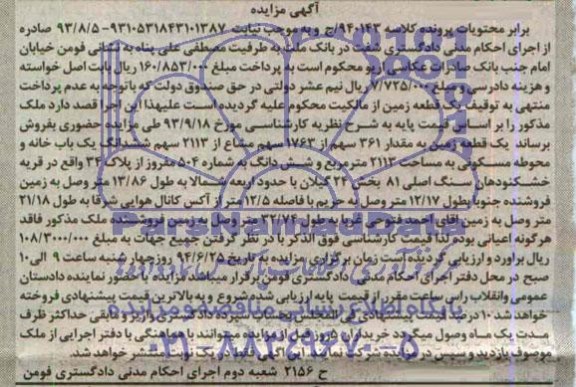 آگهی مزایده
برابر محتویات پرونده کلاسه ۹۴۰۱۴۳/ج و به موجب نیابت ۹۳۱۰۵۳۱۸۴۳۱۰۱۳۸۷-۹۳/۸/۵ صادره
از اجرای احکام مدنی دادگستری شفت در بانک ملت به طرفیت مصطفی علی پناه به نشانی فومن خیابان
امام جنب بانک صادرات عکاسی اریو محکوم است به پرداخت مبلغ ۱۶۰/۸۵۳/۰۰۰ ریال بابت اصل خواسته
و هزینه دادرسی و مبلغ ۷/۷۲۵/۰۰۰ ریال نیم عشر دولتی در حق صندوق دولت که باتوجه به عدم پرداخت
منتهی به توقیف یک قطعه زمین از مالکیت محکوم علیه گردیده است علیهذا این اجرا قصد دارد ملک
مذکور را بر اساس قیمت پایه به شرح نظریه کارشناسی مورخ ۹۳/۹/۱۸ طی مزایده حضوری بفروش
برساند یک قطعه زمین به مقدار ۳۶۱ سهم از ۱۷۶۳ سهم مشاع از ۲۱۱۳ سهم ششدانگ یک باب خانه و
محوطه مسکونی به مساحت ۲۱۱۳ مترمربع و شش دانگ به شماره ۵۰۴ مفروز از پلاک ۳۶ واقع در قریه
خشکنودهان سنگ اصلی ۸۱ بخش ۲۴ گیلان با حدود اربعه شمالا به طول ۱۳/۸۶ متر وصل به زمین
فروشنده جنوبا بطول ۱۲/۱۷ متر وصل به حریم با فاصله ۱۲/۵ متر از آکس کانال هوایی شرقا به طول ۲۱/۱۸
متر وصل به زمین اقای احمد فتوحی غربا به طول ۳۲/۷۴ متر وصل به زمین فروشنده ملک مذکور فاقد
هرگونه اعیانی بوده لذا قیمت کارشناسی فوق الذکر با در نظر گرفتن جمیع جهات به مبلغ ۱۰۸/۳۰۰۰/۰۰۰
ریال براورد و ارزیابی گردیده است زمان برگزاری مزایده به تاریخ ۹۴/۶/۲۵ روز چهار شنبه ساعت ۹ الی ۱۰
صبح در محل دفتر اجرای احکام مدنی دادگستری فومن برگزار میباشد مزایده با حضور نماینده دادستان
عمومی وانقلاب راس ساعت مقرر از قیمت پایه ارزیابی شده شروع و به بالاترین قیمت پیشنهادی فروخته
خواهد شد ۱۰ درصد قیمت پیشنهادی فی المجلس بعنوان سپرده دریافت و مابقی حداکثر ظرف
مدت یک ماه وصول میگردد خریداران ۵ روز قبل از مزایده میتوانند با هماهنگی با دفتر اجرایی از ملک
موصوف بازدید و سپس در مزایده شرکت نمایند این آگهی فقط در یک نوبت منتشر خواهد شد.
ح ۲۱۵۶ شعبه دوم اجرای احکام مدنی دادگستری فومن
ParsNamadData
پایگاه اطلاع رسانی مناقصه و مزایده
۰۲۱-۸۸۳۴۹۶۷۰-۵